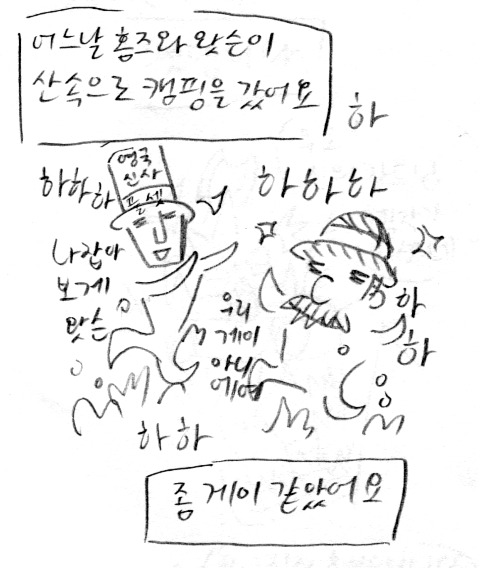 어느날 홈즈와 왓슨이
산속으로 캠핑을 갔어요
하
하하하
영국
신사
풀셋
하하하
나잡아
보게
왓슨
우리
게이
아니
에여
하
하
하하
좀 게이 같았어요